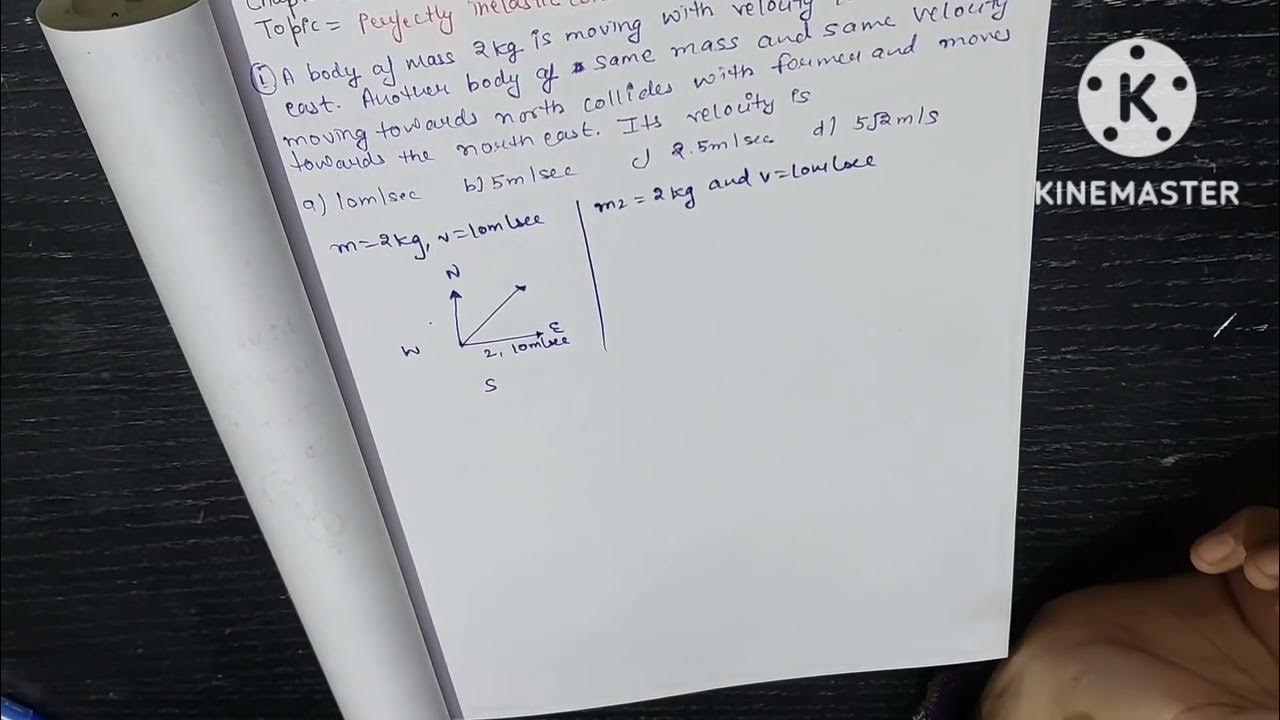 Topic = Perfectly inelastic
(i) A body of mass 2kg is moving with velocity
east. Another body of same mass and same velocity
moving towards north collides with former and moves
towards the north east. Its velocity is
a) 10m/sec b) 5m/sec c) 2.5m/sec d) 5√2m/s
m=2kg, v=10m/sec
m2 = 2kg and v=10m/sec
N
W
E
2, 10m/sec
S
K
KINEMASTER